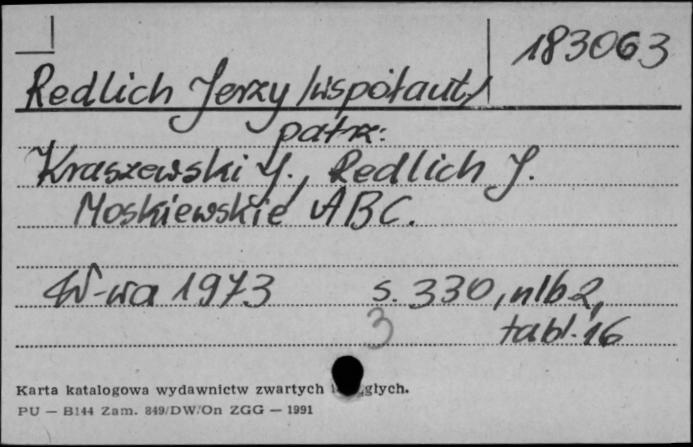 183063
Redlich Jerzy /współaut/
patrz:
Kraszewski J., Redlich J.
Moskiewskie ABC.
W-wa 1973 s. 330, nlb 2,
3 tabl. 16
Karta katalogowa wydawnictw zwartych
PU — B144 Zam. 849/DW/On ZGG — 1991